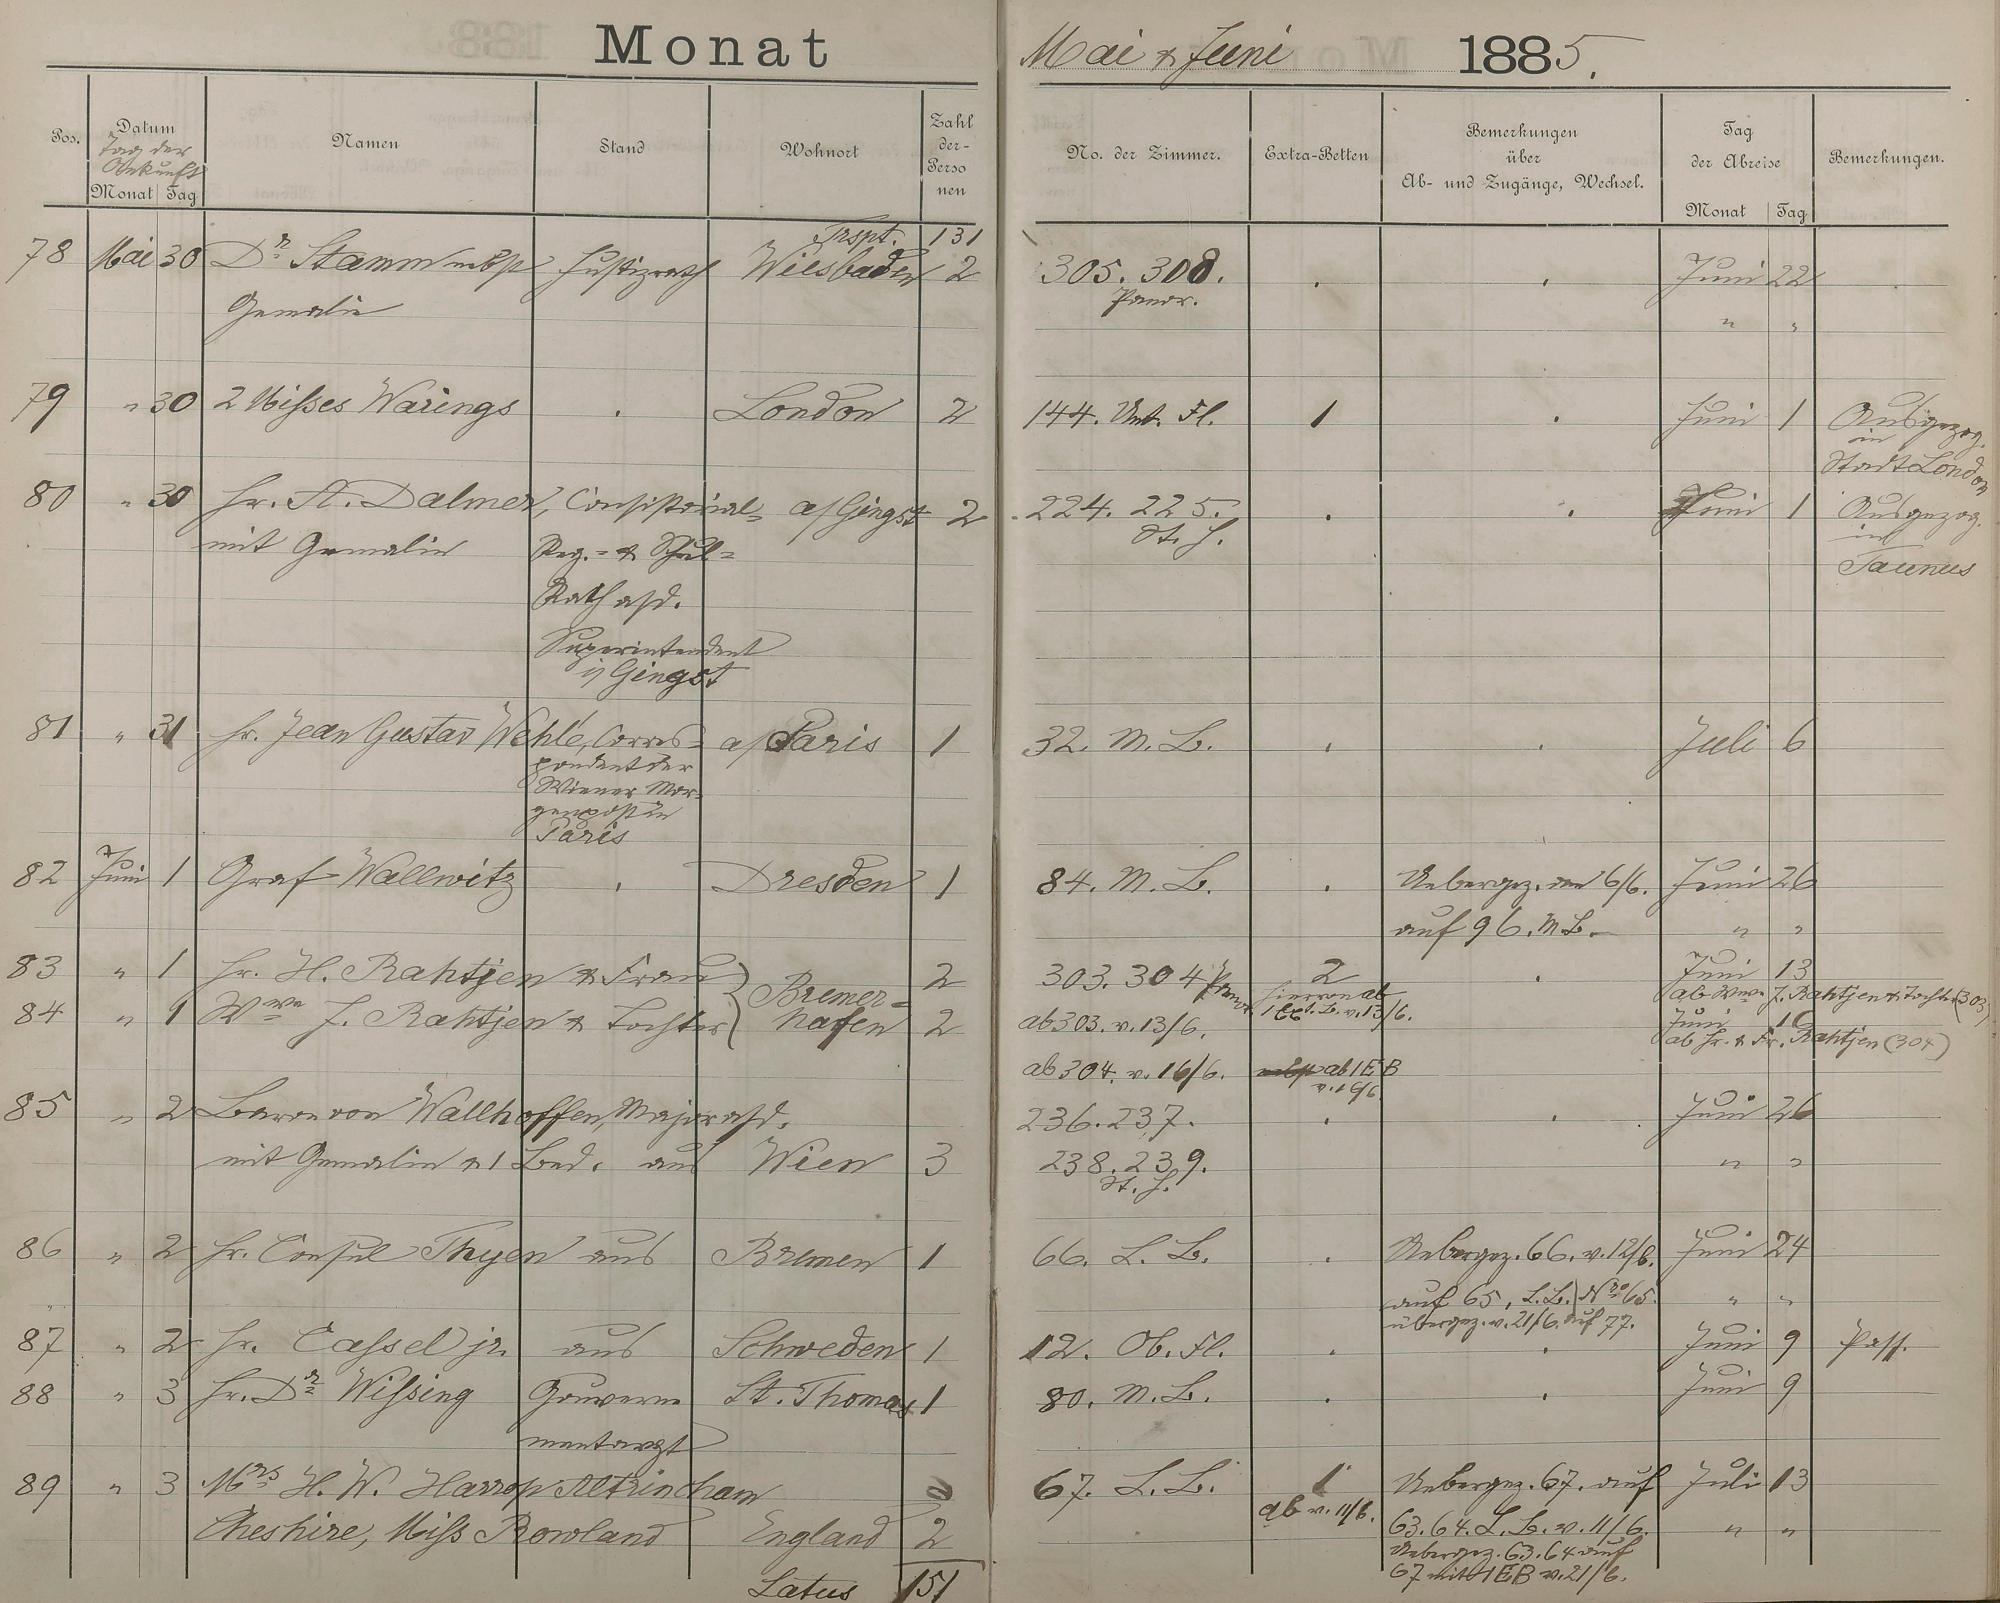 Monat
Mai & Juni 1885.
Pos. Datum Namen Stand Wohnort Zahl der Personen No. der Zimmer. Extra-Betten Bemerkungen über Ab- und Zugänge, Wechsel. Tag der Abreise Bemerkungen.
Tag der Ankunft
Monat Tag Monat Tag
Trspt. 131
78 Mai 30 Dr. Stamm nebst Justizrath Wiesbaden 2 305. 308. . . Juni 22
Gemalin Panor. " "
79 " 30 2 Misses Warings . London 2 144. Unt. Fl. 1 . Juni 1 Ausgezog.
in
Stadt London
80 " 30 Hr. St. Dalmer, Consistorial- a/Gingst 2 224. 225. . . Juni 1 Ausgezog.
mit Gemalin Reg.- & Schul- St. H. in
Rath a/D. Taunus
Superintendent
i/Gingst
81 " 31 Hr. Jean Gustav Wehle, Corres- a/Paris 1 32. M. B. . . Juli 6
pondent der
Wiener Mor-
genpost in
Paris
82 Juni 1 Graf Wallwitz . Dresden 1 84. M. B. . Uebergez. am 6/6. Juni 26
auf 96. M. B. " "
83 " 1 Hr. H. Rahtjen & Frau Bremer- 2 303. 304 Panor. 2 . Juni 13
hiervon ab ab Wwe J. Rahtjen & Tochter (303)
84 " 1 Wwe J. Rahtjen & Tochter hafen 2 ab 303. v. 13/6. v. 13/6. Juni 16
ab Hr. & Fr. Rahtjen (304)
ab 304. v. 16/6. ab 1 EB
v. 16/6.
85 " 2 Baron von Wallhoffen, Major a/D. 236. 237. . . Juni 26
mit Gemalin & 1 Bed. aus Wien 3 238. 239. " "
St. H.
86 " 2 Hr. Consul Thyen aus Bremen 1 66. L. B. . Uebergez. 66. v. 12/6. Juni 24
auf 65, L. B. Nro 65. " "
übergez. v. 21/6. auf 77.
87 " 2 Hr. Cassel jr. aus Schweden 1 12. Ob. Fl. . . Juni 9 Pass.
88 " 3 Hr. Dr. Wissing Gouverne St. Thomas 1 80. M. B. . . Juni 9
mentarzt
89 " 3 Mrs H. W. Harrop Altrincham 67. L. B. 1 Uebergez. 67. auf Juli 13
ab v. 11/6.
Cheshire, Miss Rowland England 2 63. 64. L. B. v. 11/6. " "
Uebergez. 63. 64 auf
67 mit 1 EB v. 21/6.
Latus 151